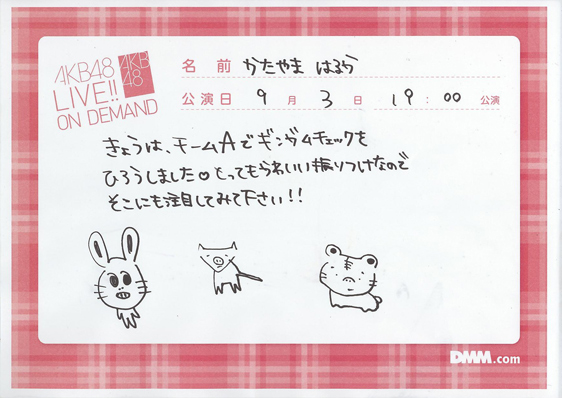 AKB48
LIVE!!
ON DEMAND
AKB
48
名 前 かたやま はるか
公演日 9 月 3 日 19:00 公演
きょうは、チームAでギンガムチェックを
ひろうしました♡とってもかわいい振りつけなので
そこにも注目してみて下さい!!
DMM.com